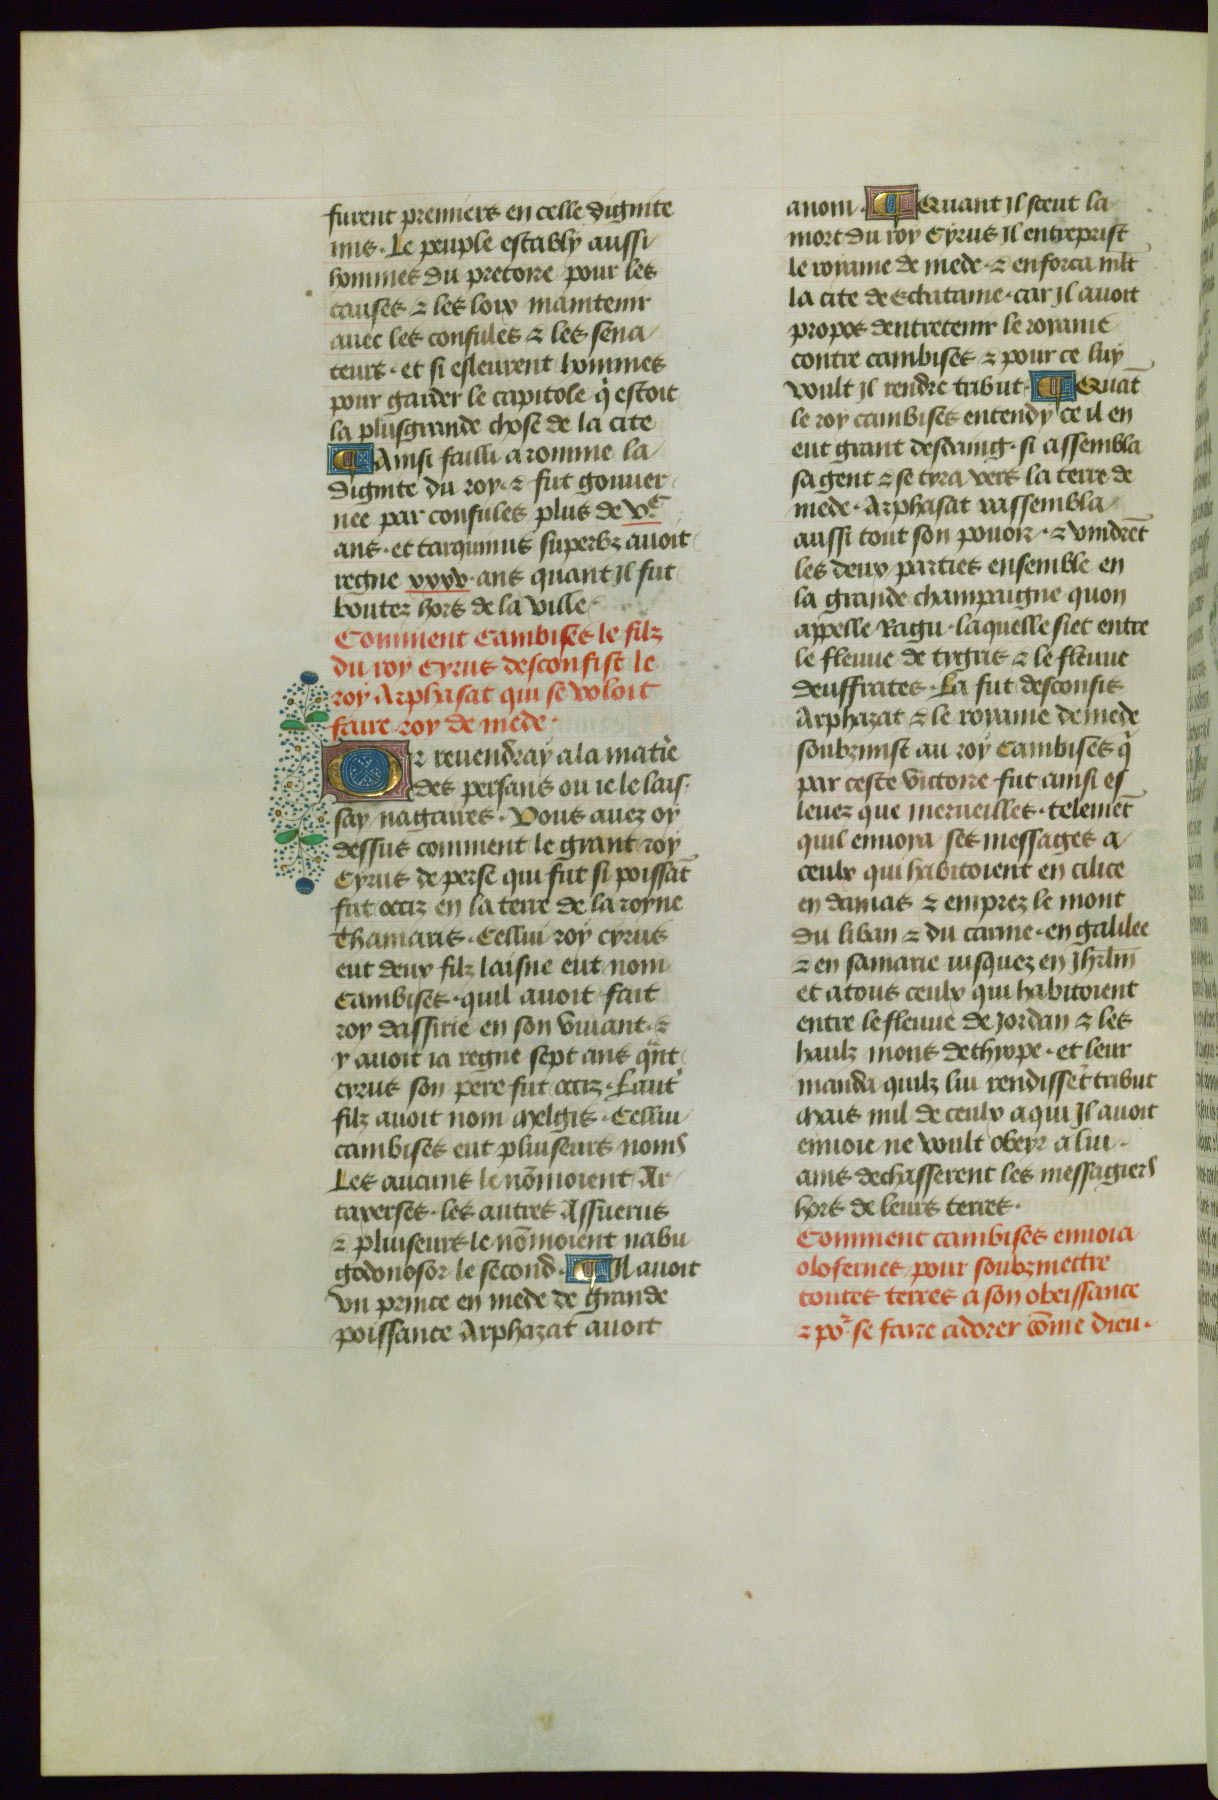 furent premiers en celle dignite
mis. Le peuple estably aussi
hommes du pretoire pour les
causes ⁊ les loix maintenir
auec les consules ⁊ les sena
teurs. et si esleurent hommes
pour garder le capitole q̓ estoit
la plusgrande chose de la cite
Ainsi failli a romme la
dignite du roy. ⁊ fut gouuer
nee par consules plus de v.ᶜ
ans. et tarquinius superbz auoit
regne xxxv. ans quant Il fut
boutez hors de la ville
Comment Cambises le filz
du roy Cyrus desconfist le
roy Arphasat qui se voloit
faire roy de mede.
Or reuendray a la matie̓
des persans ou ie le lais
say nagaires. Vous auez oy
dessus comment le grant roy
Cyrus de perse qui fut si poissāt
fut occiz en la terre de la royne
Thamaris. Cellui roy cyrus
eut deux filz laisne eut nom
Cambises. quil auoit fait
roy dassirie en son viuant. ⁊
y auoit ia regne sept ans qn̄t
cyrus son pere fut occiz. Laut̓
filz auoit nom Melgis. Cellui
cambises eut pluiseurs noms
Les aucuns le nōmoient Ar
taxerses. les autres Assuerus
⁊ pluiseurs le nōmoient nabu
godonosor le second. Il auoit
vn prince en mede de grande
poissance Arphazat auoit
anom. Quant Il sceut la
mort du roy Cyrus Il entreprist
le royame de mede. ⁊ enforca ml̄t
la cite de Echatanie. car Il auoit
propos dentretenir le royame
contre cambises ⁊ pour ce luy
voult Il rendre tribut. Quāt
le roy cambises entendy ce il en
eut grant desdaing. si assembla
sa gent ⁊ se tyra vers la terre de
mede. Arphasat rassembla
aussi tout son pouoir. ⁊ vindrēt
les deux parties ensemble en
la grande champaigne quon
appelle Ragu. laquelle siet entre
le fleuue de tygris ⁊ le fleuue
deuffrates. La fut desconfis
Arphazat ⁊ le royame de mede
soubzmist au roy Cambises q̓
par ceste victoire fut ainsi es
leuez que merueilles. telemēt
quil enuoya ses messages a
ceulx qui habitoient en cilice
en damas ⁊ emprez le mont
du liban ⁊ du carme. en galilee
⁊ en samarie iusquez en Jhrl̄m
et a tous ceulx qui habitoient
entre le fleuue de Jordan ⁊ les
haulz mons dethyope. et leur
manda quilz lui rendissēt tribut
Mais nul de ceulx a qui Il auoit
enuoie ne voult obeyr a lui.
ains dechasserent les messagiers
hors de leurs terres.
Comment cambises enuoia
olofernes pour soubzmettre
toutes terres a son obeissance
⁊ po᷑ se faire adorer cōme dieu.